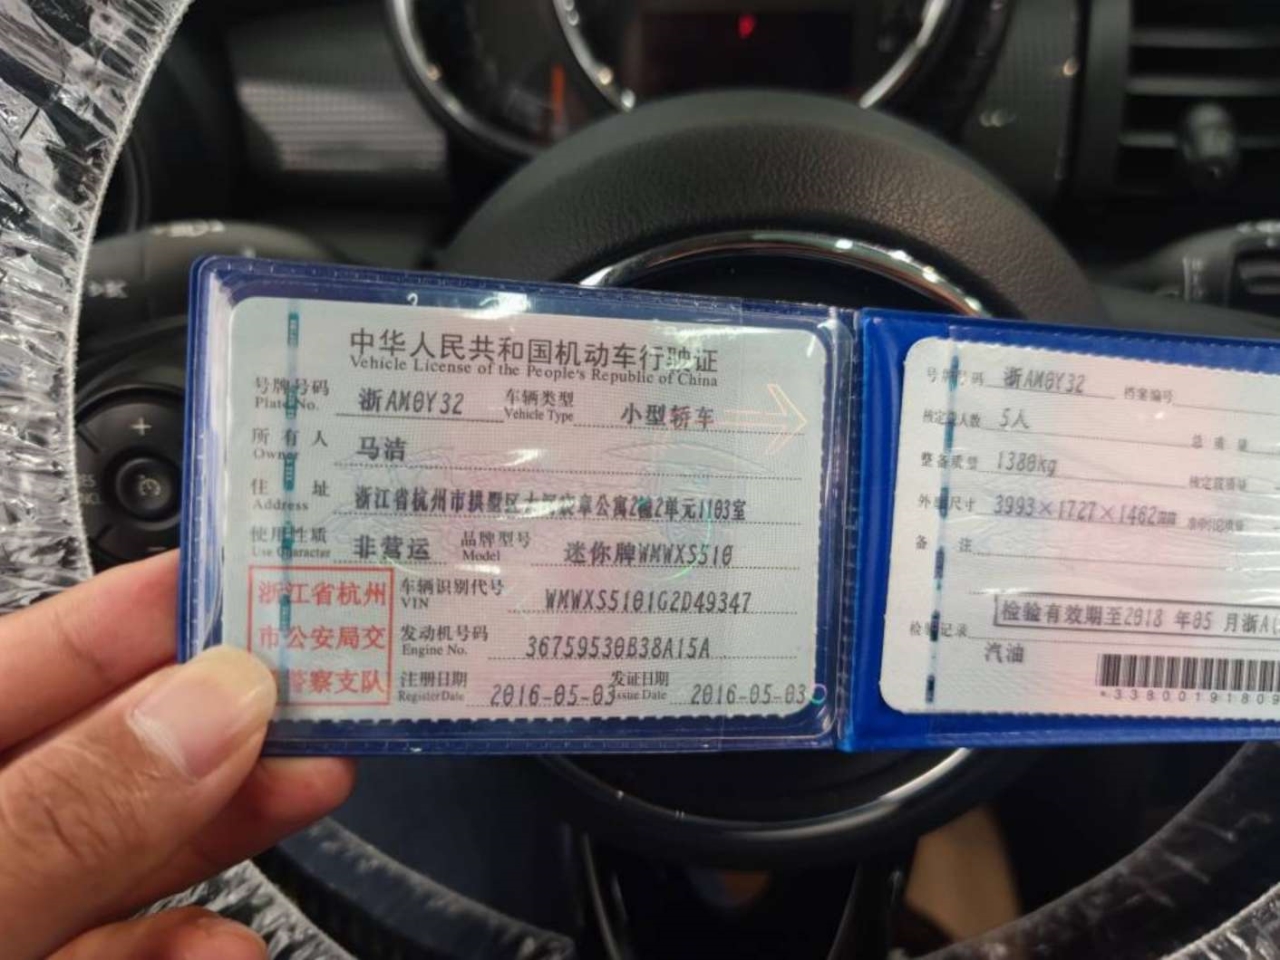 中华人民共和国机动车行驶证
Vehicle License of the People's Republic of China
号牌号码 浙AM0Y32 车辆类型 小型轿车
Plate No. Vehicle Type
所有人 马洁
Owner
住址 浙江省杭州市拱墅区 公寓2幢2单元1103室
Address
使用性质 非营运 品牌型号 迷你牌WMWXS510
Use Character Model
浙江省杭州
市公安局交
警察支队
车辆识别代号 WMWXS5101G2D49347
VIN
发动机号码 36759530B38A15A
Engine No.
注册日期 2016-05-03 发证日期 2016-05-03
Register Date Issue Date
号牌号码 浙AM0Y32 档案编号
核定载人数 5人 总质量
整备质量 1380kg 核定载质量
外廓尺寸 3993×1727×1462mm
备注
检验有效期至2018 年05 月浙A
检验记录
汽油
*3380019180